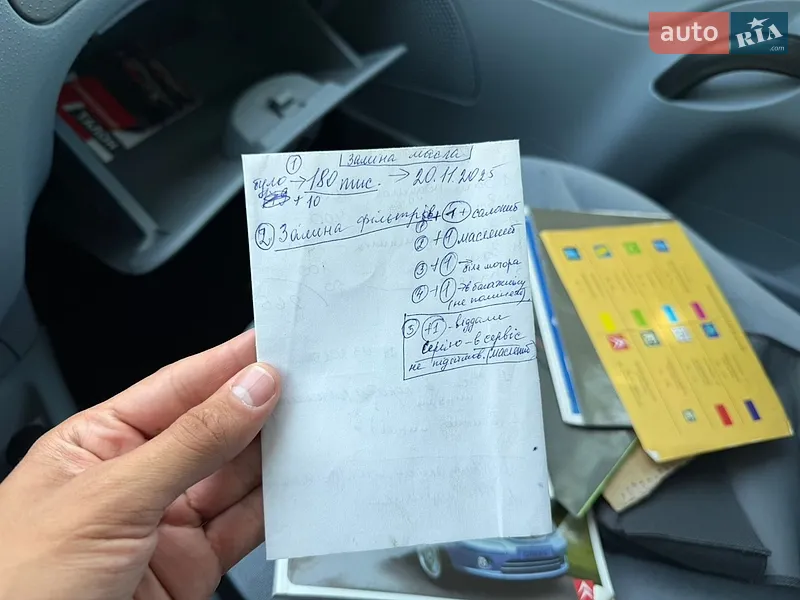 auto RIA .com
ТАЛОН
① Заміна масла
було → 180 тис. → 20.11.2025
+ 10
② Заміна фільтрів
① + 1 + салоний
② + 1 масляний
③ + 1 → біля мотора
④ + 1 → в багажнику
(не поміняли)
⑤ +1 - віддали
Сергію - в сервіс
не підійшов. масляний